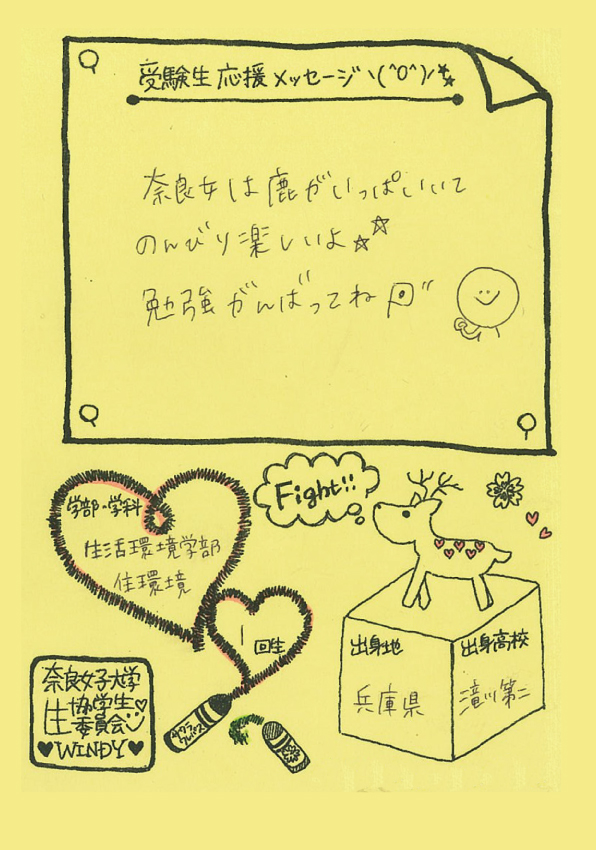 受験生応援メッセージヽ(^O^)ノ
奈良女は鹿がいっぱいいて
のんびり楽しいよ☆☆
勉強がんばってね
Fight!!
学部・学科
生活環境学部
住環境
1回生
出身地
兵庫県
出身高校
滝川第二
奈良女子大学
生協学生
委員会
♥WINDY♥
サクラ
クレパス